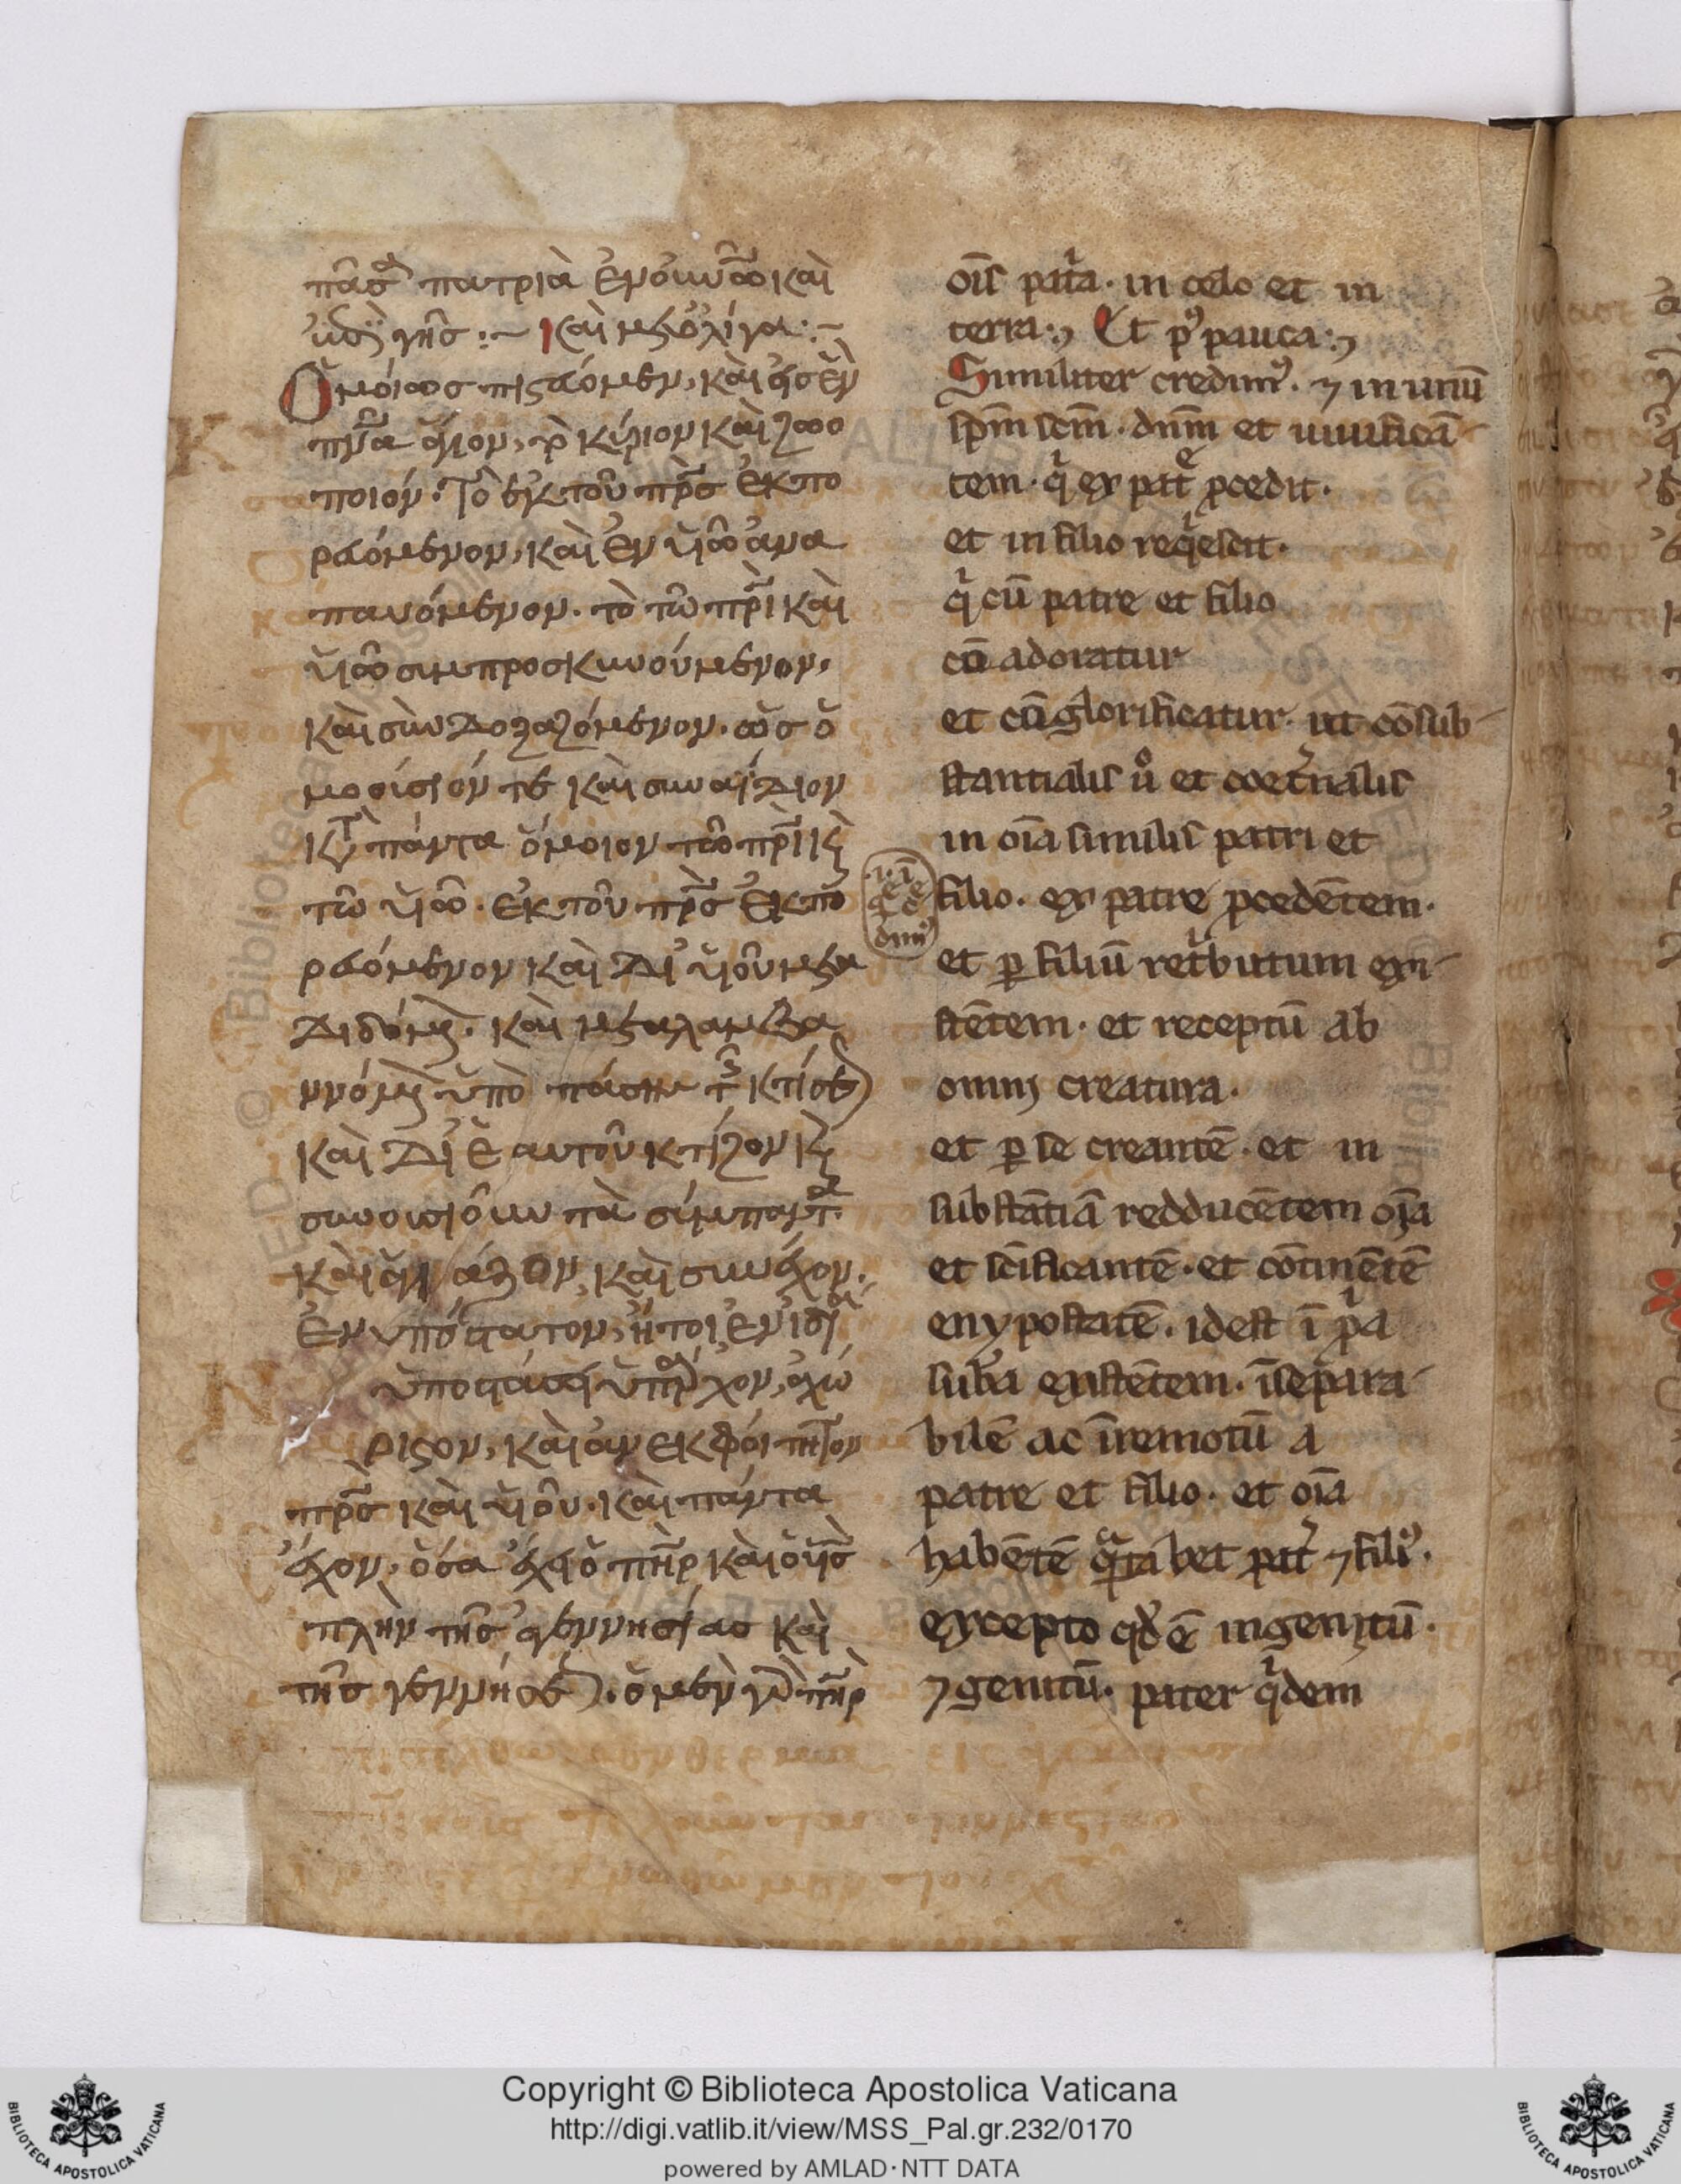 πᾶσα πατριὰ ἐν οὐνῶ καὶ
γῆς :~ Καὶ μετ ὀλίγα :~
Ὁμοίως πιστεύομεν, καὶ εἰς ἓν
πνα ἅγιον, τὸ κύριον καὶ ζωο
ποιόν. Τὸ ἐκ τοῦ πρς ἐκπο
ρευόμενον, καὶ ἐν υἱῶ ἀνα
παυόμενον. τὸ τῶ πρι καὶ
υἱῶ συμπροσκυνούμενον,
καὶ συνδοξαζόμενον. ὡς ὁ
μοούσιόν τε καὶ συναΐδιον
κατ πάντα ὅμοιον τῶ πρι κ
τῶ υἱῶ. ἐκ τοῦ πρς ἐκπο
ρευόμενον καὶ δι υἱοῦ μετα
διδόμ. καὶ μεταλαμβα
νόμ ὑπὸ πάσης τ κτίσε
καὶ δι ἑαυτοῦ κτίζον κ
συνουσιοῦν τὰ σύμπαντ
καὶ ἁγιάζον, καὶ συνέχον.
ἐνυπόστατον, ἤτοι ἐν ἰδί
ὑποστάσει ὑπάρχον, ἀχώ
ριστον, καὶ ἀνεκφοίτητον
πρς καὶ υἱοῦ. καὶ πάντα
ἔχον, ὅσα ἔχει ὁ πηρ καὶ ὁ υἱς
πλὴν τῆς ἀγεννησίας καὶ
τῆς γεννήσε. ὁ μὲν γὰρ πηρ
oīs patͥa. in celo et in
terra:, Et pꝰ pauca:,
Similiter credimꝰ. ⁊ in unū
sp̄m sc̄m. dn̄m et uiuificā-
tem. qͥ ex patͤ pcedit.
et in filio reqͥescit.
qͥ cū patre et filio
cō adoratur
et cōglorificatur. ut cōsub-
stantialis uͦ et coet͛nalis
in oīa similis patri et
filio. ex patre pcedētem.
et ꝑ filiū retͥbutum exi-
stētem. et receptū ab
omnj creatura.
et ꝑ se creantē. et in
substātiā redducētem oīa
et sc̄ificantē. et cōtinētē
enypostatē. idest ī pͥa
subͣa existētem. īsepara-
bilē ac īremotū a
patre et filio. et oīa
habētē qͣ habet pat͛ ⁊ filiꝰ.
excepto qd̓ ē ingenitū.
⁊ genitū. pater qͥdem
Copyright © Biblioteca Apostolica Vaticana
http://digi.vatlib.it/view/MSS_Pal.gr.232/0170
powered by AMLAD·NTT DATA
BIBLIOTECA APOSTOLICA VATICANA
BIBLIOTECA APOSTOLICA VATICANA